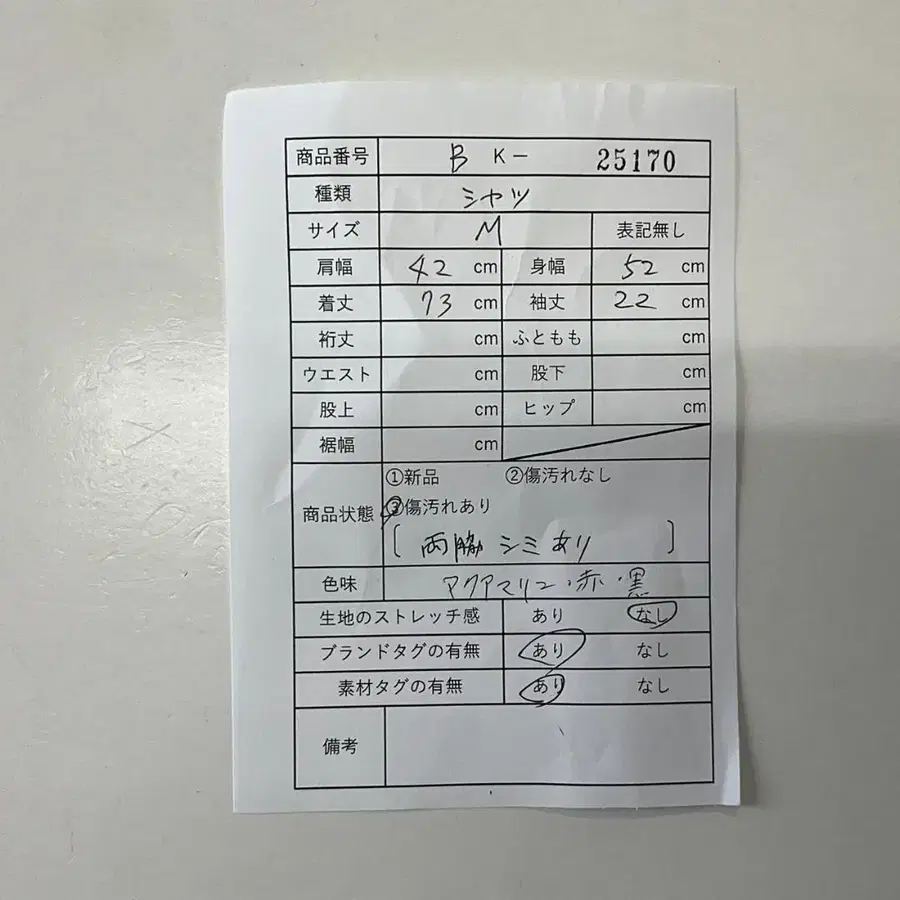 商品番号 B K- 25170
種類 シャツ
サイズ M 表記無し
肩幅 42 cm 身幅 52 cm
着丈 73 cm 袖丈 22 cm
裄丈 cm ふともも cm
ウエスト cm 股下 cm
股上 cm ヒップ cm
裾幅 cm
商品状態 ①新品 ②傷汚れなし
③傷汚れあり
[ 両脇 シミあり ]
色味 アクアマリン・赤・黒
生地のストレッチ感 あり なし
ブランドタグの有無 あり なし
素材タグの有無 あり なし
備考